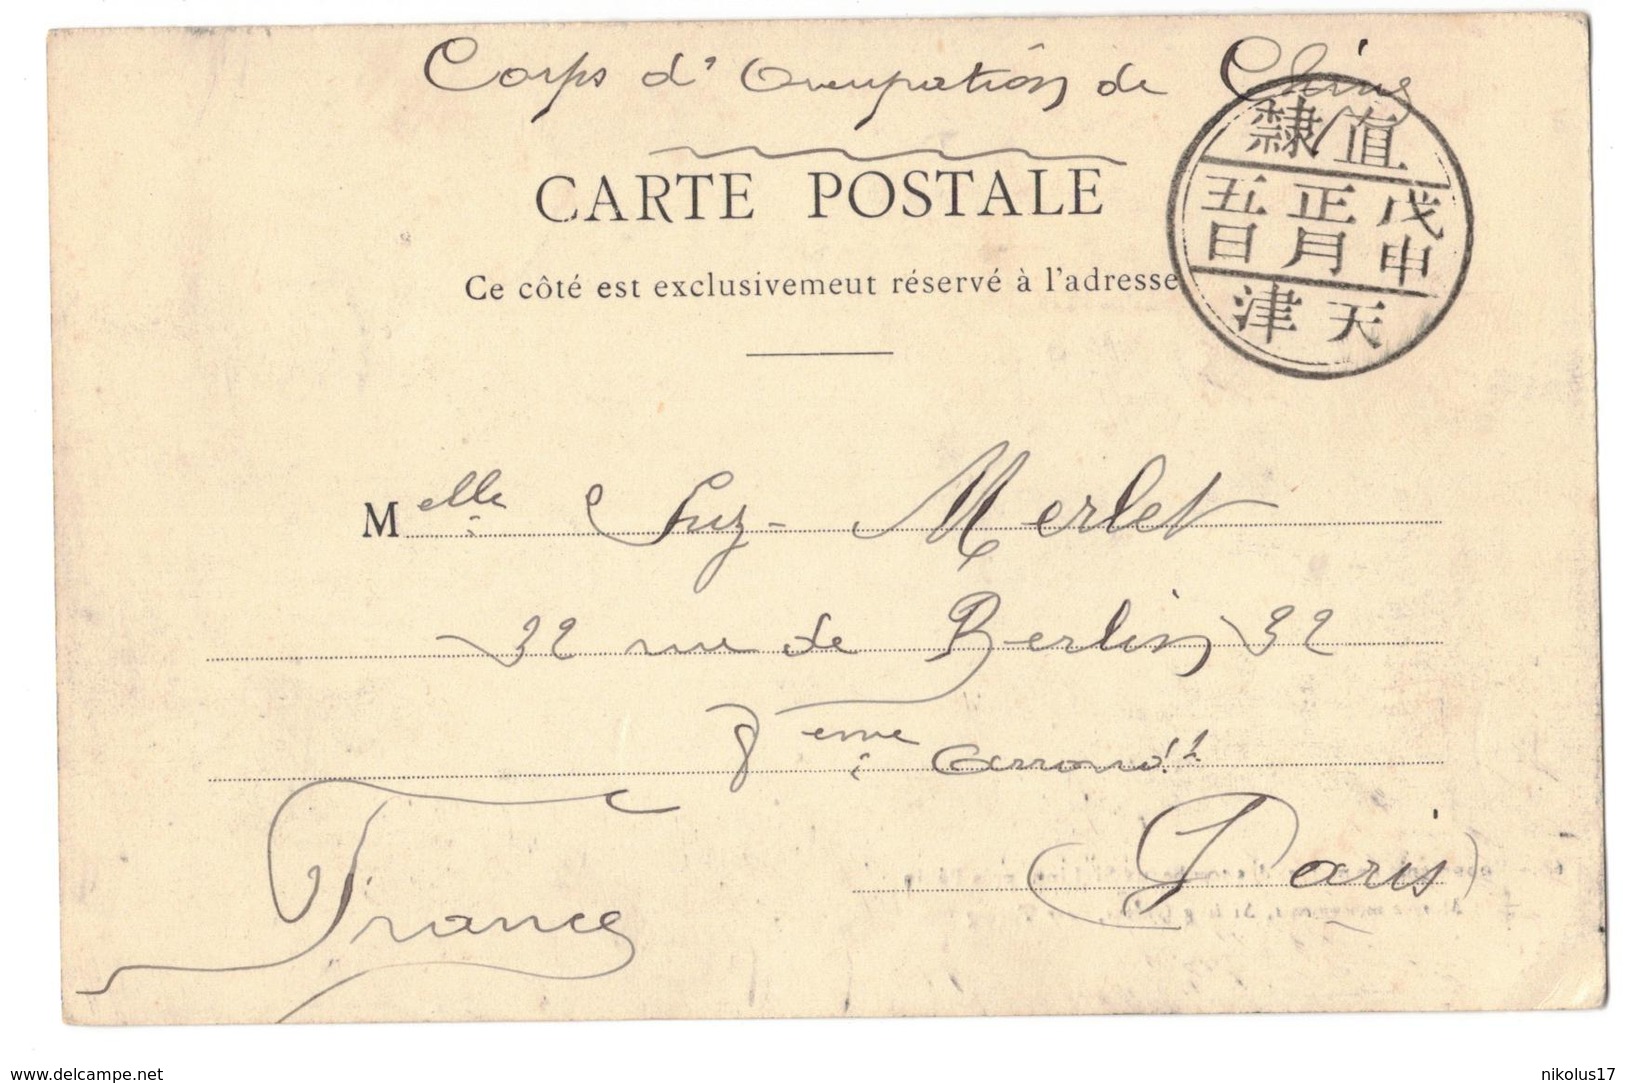 Corps d'Occupation de Chine
CARTE POSTALE
Ce côté est exclusivemeut réservé à l'adresse
直隸
戊申 正月 五日
天津
Melle Suz- Merlet
32 rue de Berlin 32
8eme arrondt
Paris
France
www.delcampe.net
nikolus17